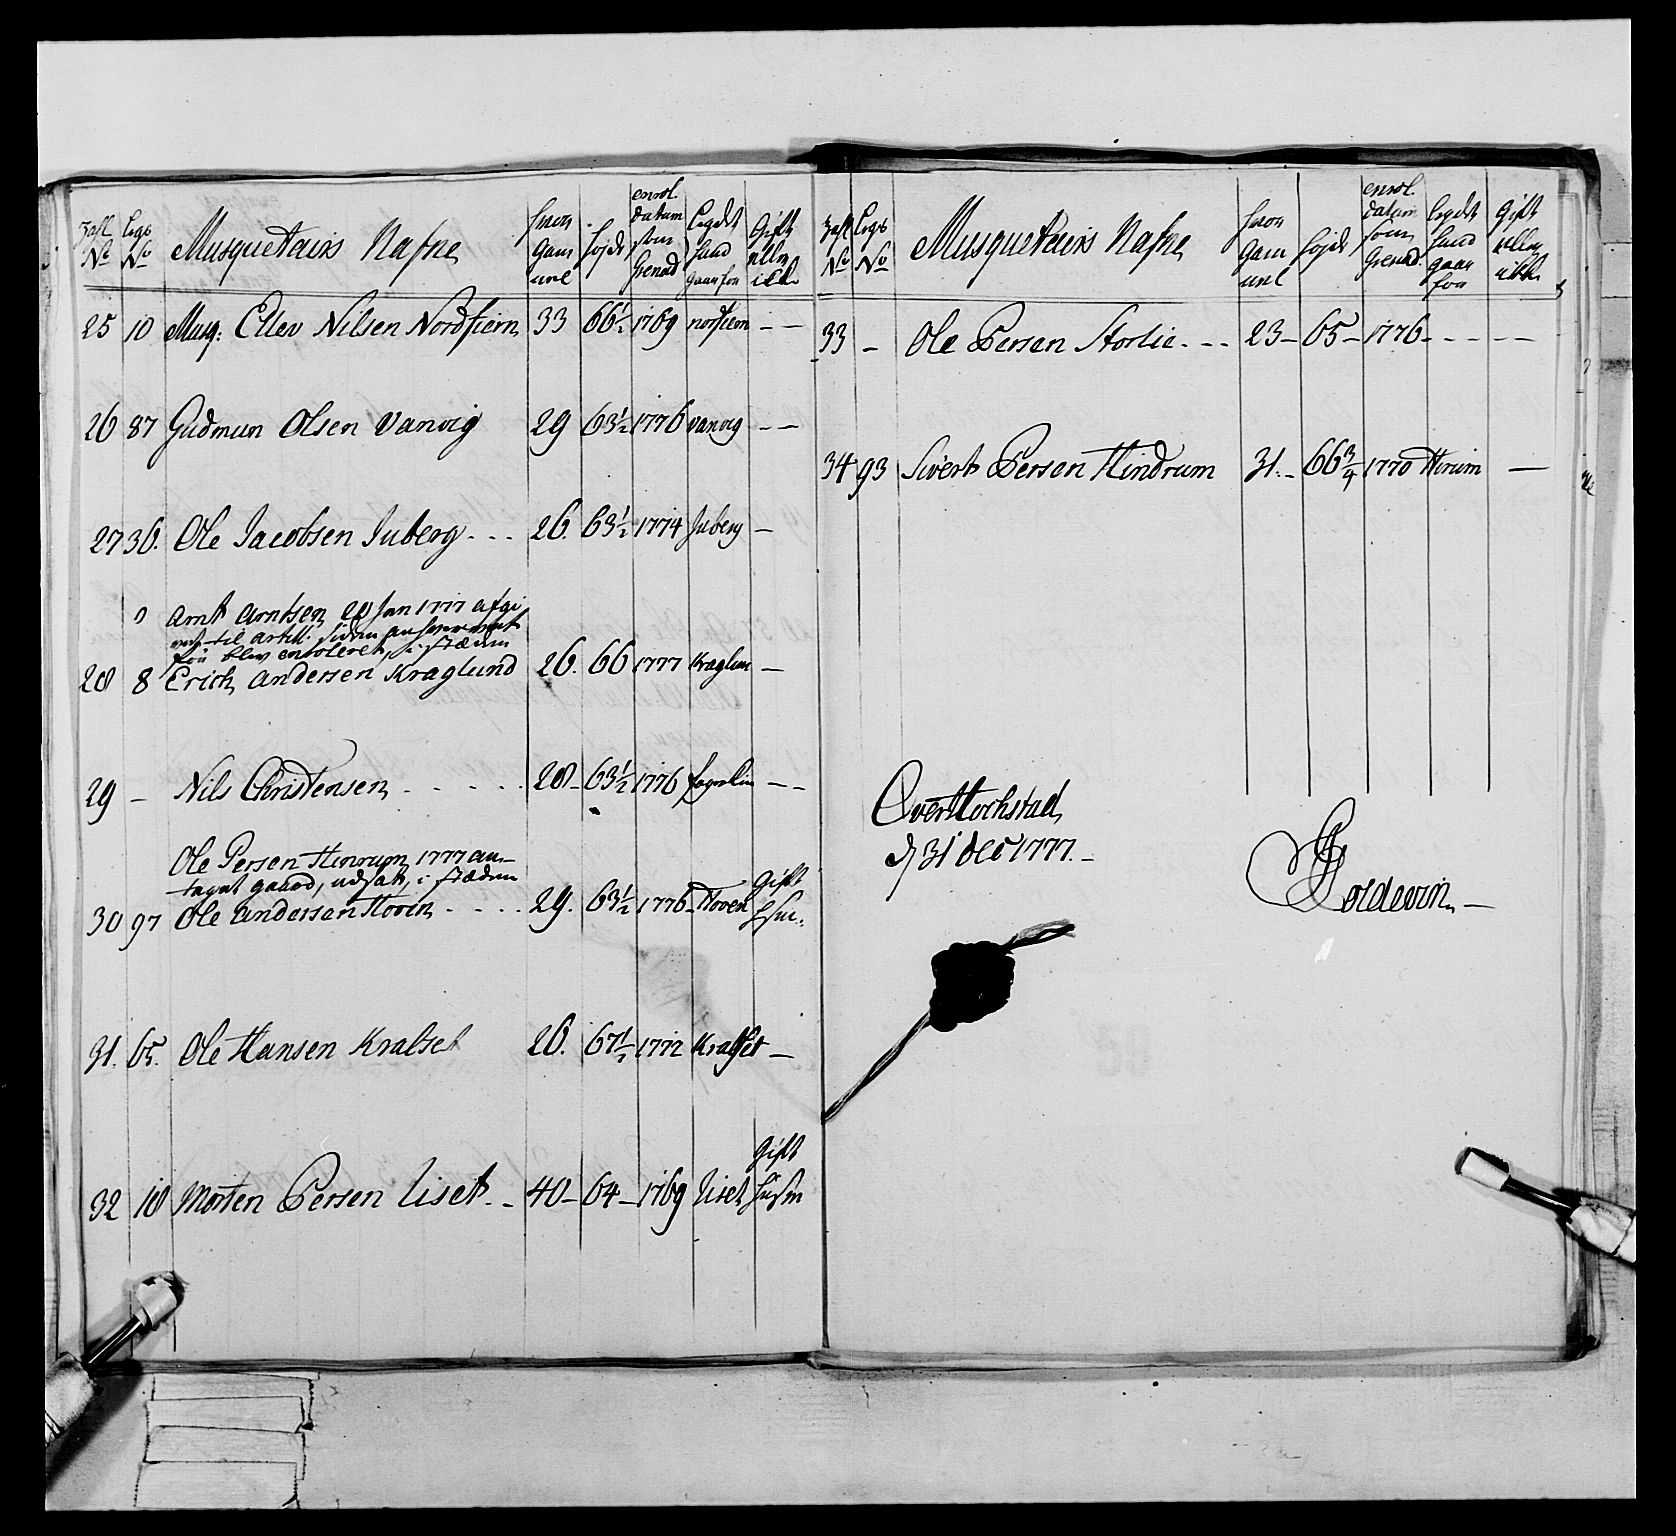 No No Musqueteurs Nafne
hvor gam mel
højde
enrol. datum som Grenad
Legdet hand gaar for
Gift eller ikke
25 10 Musq: Ellev Nilsen Nordfiern 33 66½ 1769 nordfiern — —
26 87 Gudmun Olsen Vanvig 29 63½ 1776 vanvig — —
27 36. Ole Jacobsen Juberg - - - 26. 63½ 1774 Juberg —
Arnt Arntsen 28 Jan 1777 afgi
vet til artill.
for blev enrolleret, i stæden
28 8 Erich Andersen Kraglund 26. 66 1777 Kraglun —
29 — Nils Christensen - - - - - 28 - 63½ 1776 — —
Ole Persen Hinrum 1777 an-
taget gaard, udsat, i stæden
30 97 Ole Andersen Hoven - - - - 29. 63½ 1776 - Hoven Gift
31. 65. Ole Hansen Kralset 26. 67½ 1772 Kralset —
32 18 Morten Persen Liset - - 40 - 64 - 1769 Liset Gift Husm
No No Musqueteurs Nafne
hvor gam mel
højde
enrol. datum som Grenad
Legdet hand gaar for
Gift eller ikke
33 — Ole Persen Storlie - - - 23 - 65 - 1776 - - - - - —
34 93 Sivert Persen Hindrum 31. - 66¾ 1770 Hinrim —
Overhochstad
d 31 Dec 1777. —
Coldevin. —